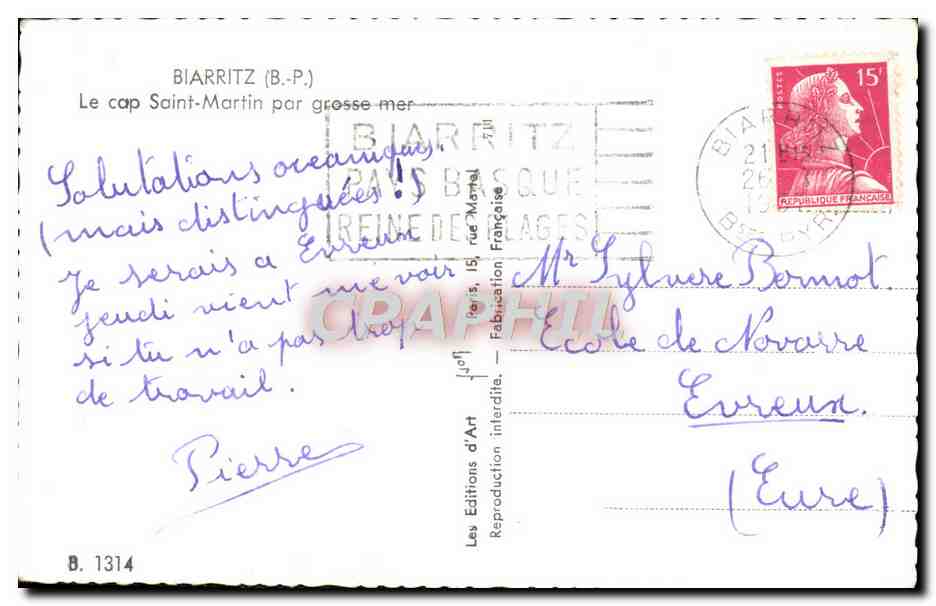 BIARRITZ (B.-P.)
Le cap Saint-Martin par grosse mer
Salutations océaniques.
(mais distinguées !)
Je serais a Evreux
jeudi vient me voir
si tu n'a pas trop
de travail.
Pierre
B. 1314
BIARRITZ
PAYS BASQUE
REINE DES PLAGES
Les Editions d'Art
Yvon
Paris, 15, rue Martel
Reproduction interdite. — Fabrication Française
POSTES
15F
REPUBLIQUE FRANÇAISE
BIARRITZ
21H
26
Bses PYR
Mr Sylvere Bormot.
Ecole de Navarre
Evreux.
(Eure)
CRAPHIL